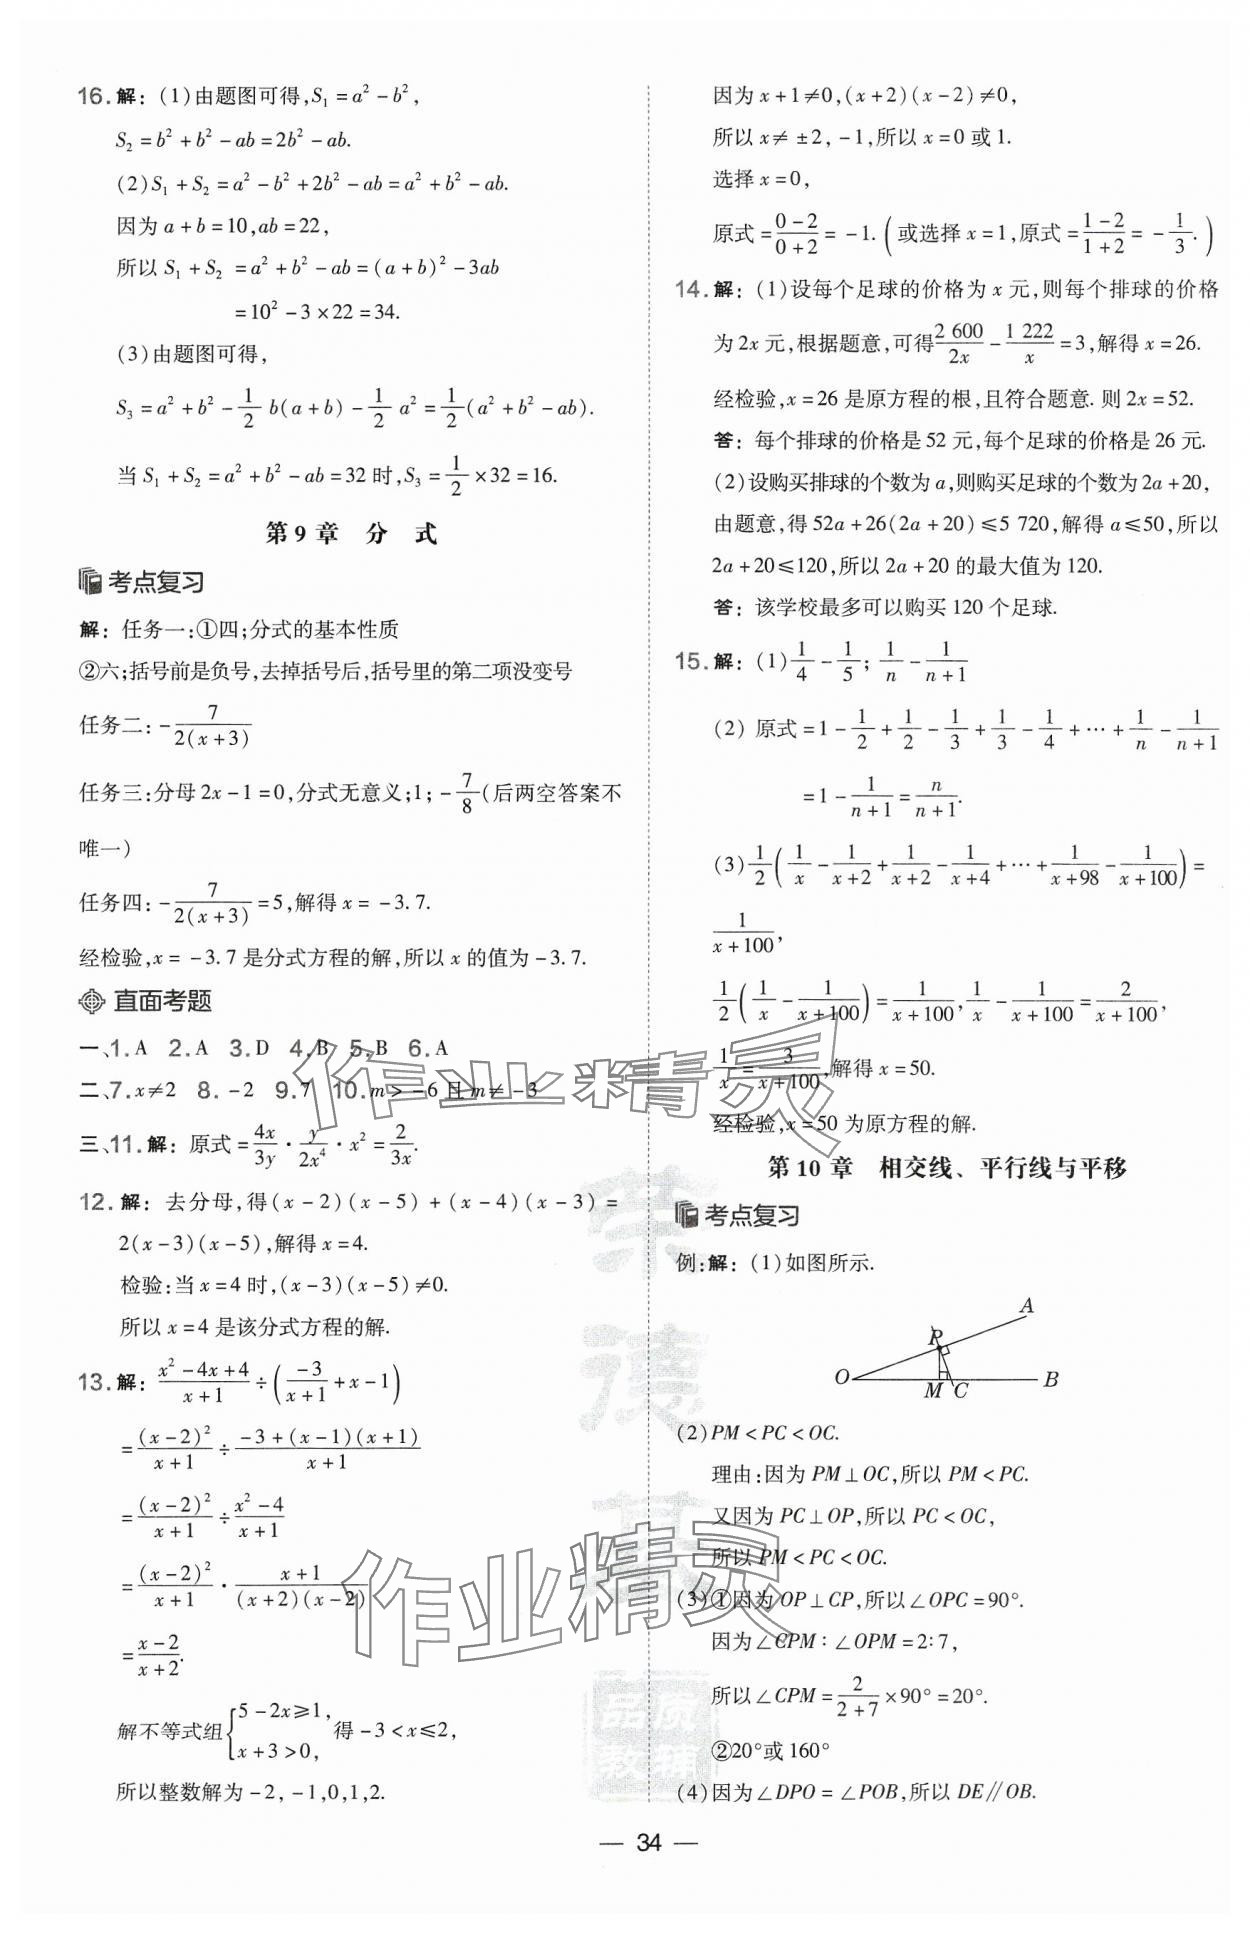 16. 解：(1)由题图可得,S₁ = a² - b²,
S₂ = b² + b² - ab = 2b² - ab.
(2)S₁ + S₂ = a² - b² + 2b² - ab = a² + b² - ab.
因为 a + b = 10, ab = 22,
所以 S₁ + S₂ = a² + b² - ab = (a + b)² - 3ab
= 10² - 3 × 22 = 34.
(3)由题图可得,
S₃ = a² + b² - 1/2 b(a + b) - 1/2 a² = 1/2(a² + b² - ab).
当 S₁ + S₂ = a² + b² - ab = 32 时, S₃ = 1/2 × 32 = 16.
第 9 章 分 式
考点复习
解：任务一:①四;分式的基本性质
②六;括号前是负号,去掉括号后,括号里的第二项没变号
任务二: - 7/(2(x + 3))
任务三:分母 2x - 1 = 0,分式无意义;1; - 7/8(后两空答案不
唯一)
任务四: - 7/(2(x + 3)) = 5,解得 x = - 3.7.
经检验, x = - 3.7 是分式方程的解,所以 x 的值为 - 3.7.
直面考题
一、1. A 2. A 3. D 4. B 5. B 6. A
二、7. x ≠ 2 8. - 2 9. 7 10. m > - 6 且 m ≠ - 3
三、11. 解：原式 = 4x/3y · y/2x⁴ · x² = 2/3x.
12. 解：去分母,得 (x - 2)(x - 5) + (x - 4)(x - 3) =
2(x - 3)(x - 5),解得 x = 4.
检验:当 x = 4 时, (x - 3)(x - 5) ≠ 0.
所以 x = 4 是该分式方程的解.
13. 解：(x² - 4x + 4)/(x + 1) ÷ (-3/(x + 1) + x - 1)
= (x - 2)²/(x + 1) ÷ (-3 + (x - 1)(x + 1))/(x + 1)
= (x - 2)²/(x + 1) ÷ (x² - 4)/(x + 1)
= (x - 2)²/(x + 1) · (x + 1)/((x + 2)(x - 2))
= (x - 2)/(x + 2).
解不等式组{5 - 2x ≥ 1, x + 3 > 0, 得 - 3 < x ≤ 2,
所以整数解为 - 2, - 1, 0, 1, 2.
因为 x + 1 ≠ 0, (x + 2)(x - 2) ≠ 0,
所以 x ≠ ± 2, - 1,所以 x = 0 或 1.
选择 x = 0,
原式 = (0 - 2)/(0 + 2) = - 1. (或选择 x = 1,原式 = (1 - 2)/(1 + 2) = - 1/3.)
14. 解：(1)设每个足球的价格为 x 元,则每个排球的价格
为 2x 元,根据题意,可得 2 600/2x - 1 222/x = 3,解得 x = 26.
经检验, x = 26 是原方程的根,且符合题意. 则 2x = 52.
答：每个排球的价格是 52 元,每个足球的价格是 26 元.
(2)设购买排球的个数为 a,则购买足球的个数为 2a + 20,
由题意,得 52a + 26(2a + 20) ≤ 5 720,解得 a ≤ 50,所以
2a + 20 ≤ 120,所以 2a + 20 的最大值为 120.
答：该学校最多可以购买 120 个足球.
15. 解：(1) 1/4 - 1/5; 1/n - 1/(n + 1)
(2) 原式 = 1 - 1/2 + 1/2 - 1/3 + 1/3 - 1/4 + … + 1/n - 1/(n + 1)
= 1 - 1/(n + 1) = n/(n + 1).
(3) 1/2 (1/x - 1/(x + 2) + 1/(x + 2) - 1/(x + 4) + … + 1/(x + 98) - 1/(x + 100)) =
1/(x + 100),
1/2 (1/x - 1/(x + 100)) = 1/(x + 100), 1/x - 1/(x + 100) = 2/(x + 100),
1/x = 3/(x + 100),解得 x = 50.
经检验, x = 50 为原方程的解.
第 10 章 相交线、平行线与平移
考点复习
例:解：(1)如图所示.
A
P
O
M C
B
(2)PM < PC < OC.
理由:因为 PM ⊥ OC,所以 PM < PC.
又因为 PC ⊥ OP,所以 PC < OC,
所以 PM < PC < OC.
(3)①因为 OP ⊥ CP,所以 ∠OPC = 90°.
因为 ∠CPM : ∠OPM = 2:7,
所以 ∠CPM = 2/(2 + 7) × 90° = 20°.
②20°或 160°
(4)因为 ∠DPO = ∠POB,所以 DE // OB.
— 34 —
作业精灵
作业精灵
荣德基
品质
教辅